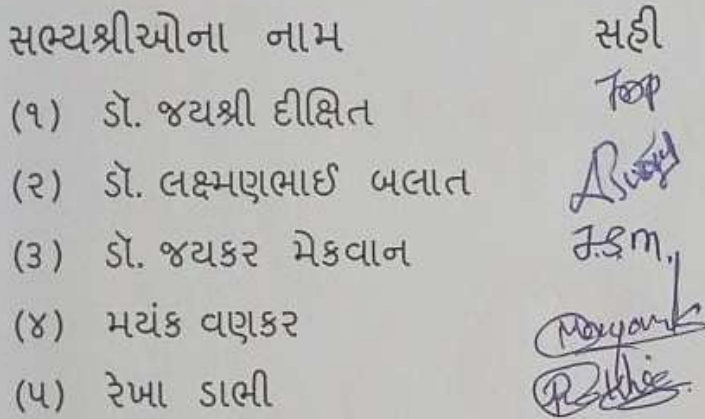 સભ્યશ્રીઓના નામ સહી
(૧) ડૉ. જયશ્રી દીક્ષિત
(૨) ડૉ. લક્ષ્મણભાઈ બલાત
(૩) ડૉ. જયકર મેકવાન J.S.M.
(૪) મયંક વણકર Mayank
(૫) રેખા ડાભી